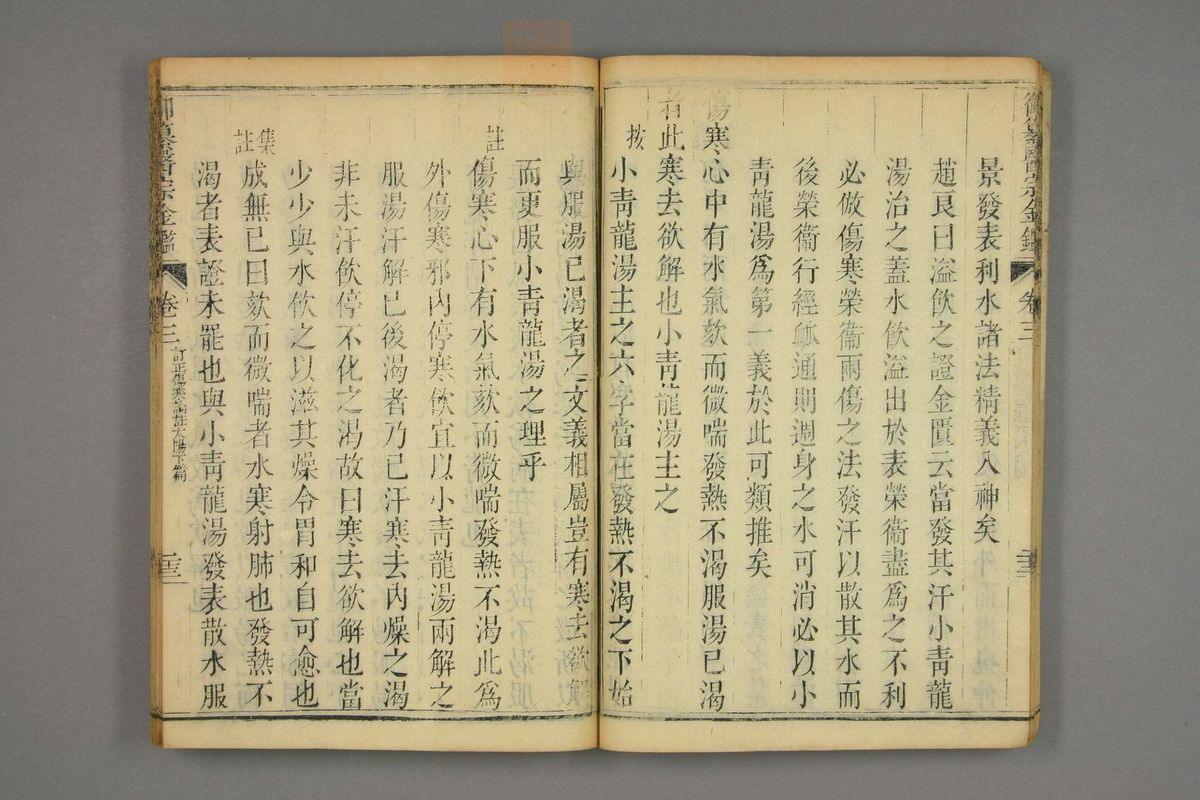 御纂醫宗金鑑 卷三
景發表利水諸法精義入神矣
趙良曰溢飲之證金匱云當發其汗小青龍
湯治之蓋水飲溢出於表榮衞盡爲之不利
必倣傷寒榮衞兩傷之法發汗以散其水而
後榮衞行經脈通則週身之水可消必以小
青龍湯爲第一義於此可類推矣
傷寒心中有水氣欬而微喘發熱不渴服湯已渴
者此寒去欲解也小青龍湯主之
按 小青龍湯主之六字當在發熱不渴之下始
與服湯已渴者之文義相屬豈有寒去欲解
而更服小青龍湯之理乎
註 傷寒心下有水氣欬而微喘發熱不渴此爲
外傷寒邪內停寒飲宜以小青龍湯兩解之
服湯汗解已後渴者乃已汗寒去內燥之渴
非未汗飲停不化之渴故曰寒去欲解也當
少少與水飲之以滋其燥令胃和自可愈也
集註 成無已曰欬而微喘者水寒射肺也發熱不
渴者表證未罷也與小青龍湯發表散水服
御纂醫宗金鑑 卷三 訂正傷寒論註太陽下篇